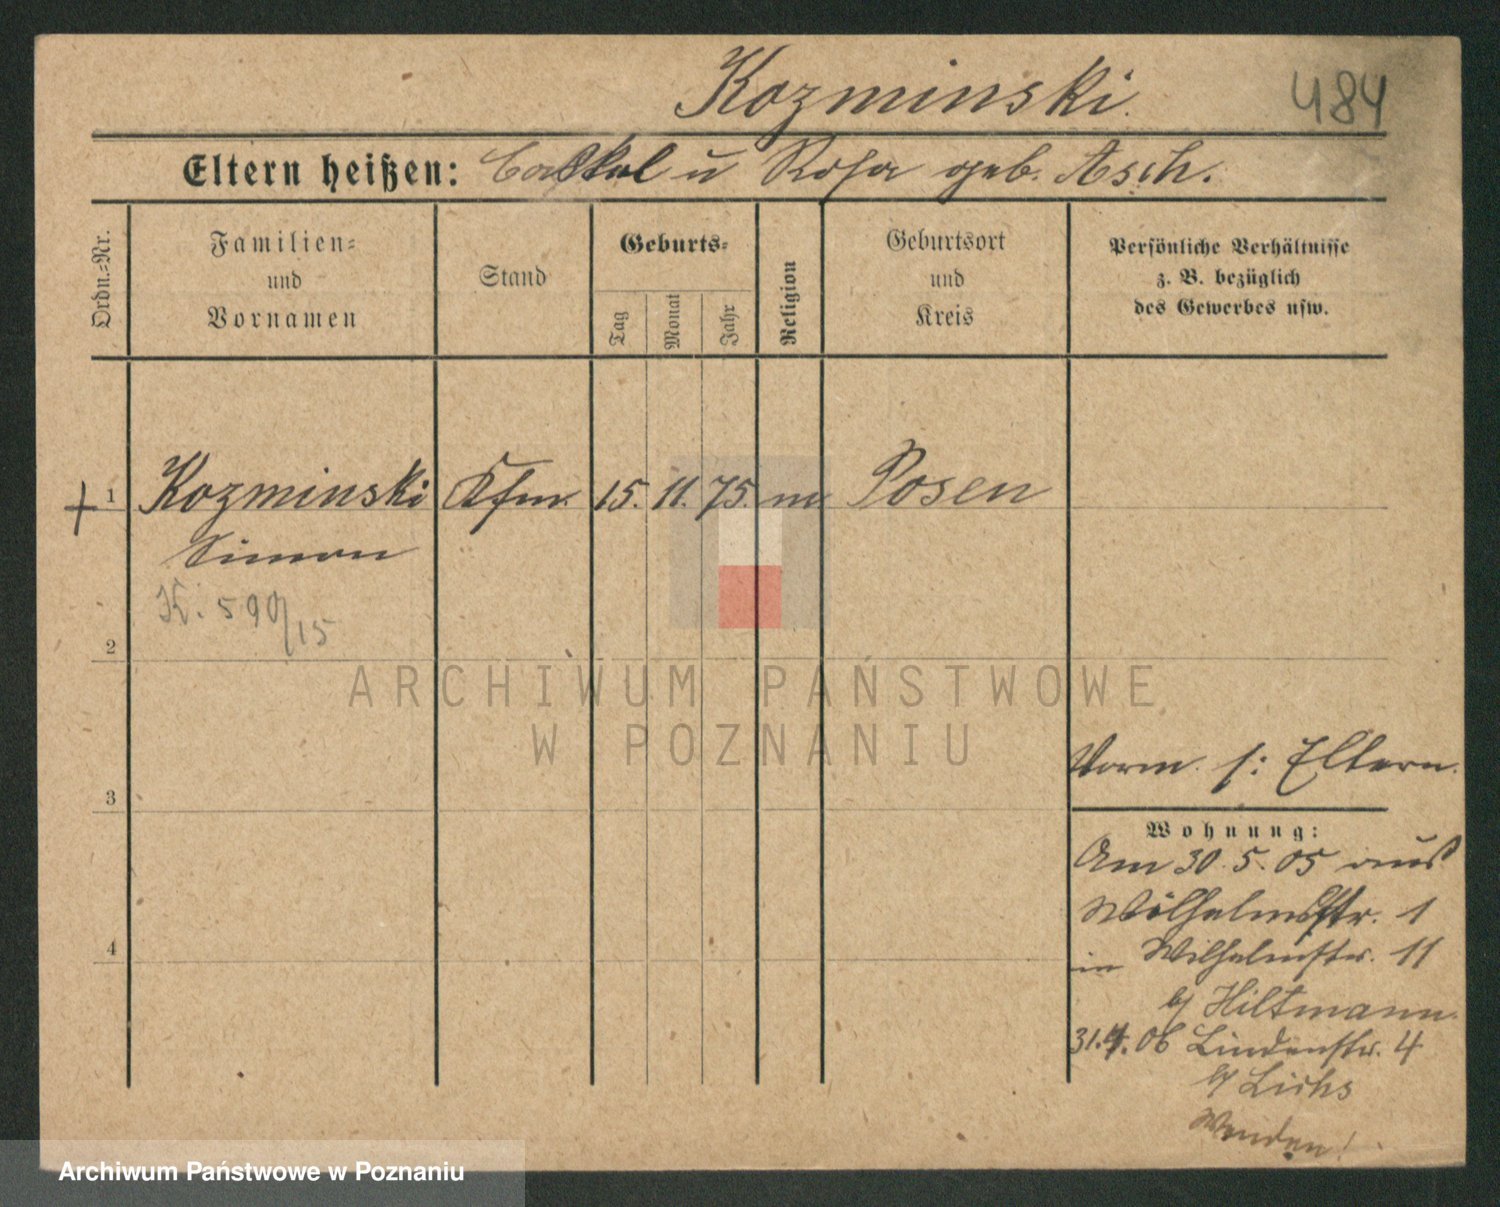 Kozminski.
484
Eltern heißen: Caskel u Rosa geb. Asch.
Ordn.=Nr.
Familien=
und
Vornamen
Stand
Geburts=
Tag
Monat
Jahr
Religion
Geburtsort
und
Kreis
Persönliche Verhältnisse
z. B. bezüglich
des Gewerbes usw.
+ 1 Kozminski Kfm. 15. 11. 75. m Posen
Simon
K. 590/15
2
ARCHIWUM PAŃSTWOWE
W POZNANIU
Vorm. s: Eltern.
3
Wohnung:
Am 30. 5. 05 aus
Wilhelmstr. 1
4
in Wilhelmstr. 11
b/ Hiltmann.
06 Lindenstr. 4
b/
Wenden!
Archiwum Państwowe w Poznaniu